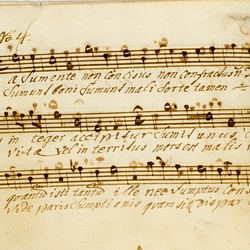 No 4.
a Sumente non Concisus non confractus
Sumunt boni Sumunt mali Sorte tamen
in teger accipitur Sumit unus
vitae vel in teritus mors est malis
quantu isti tantu ille nec Sumptus Con
Vide paris Sumpti onis quam sit dispar